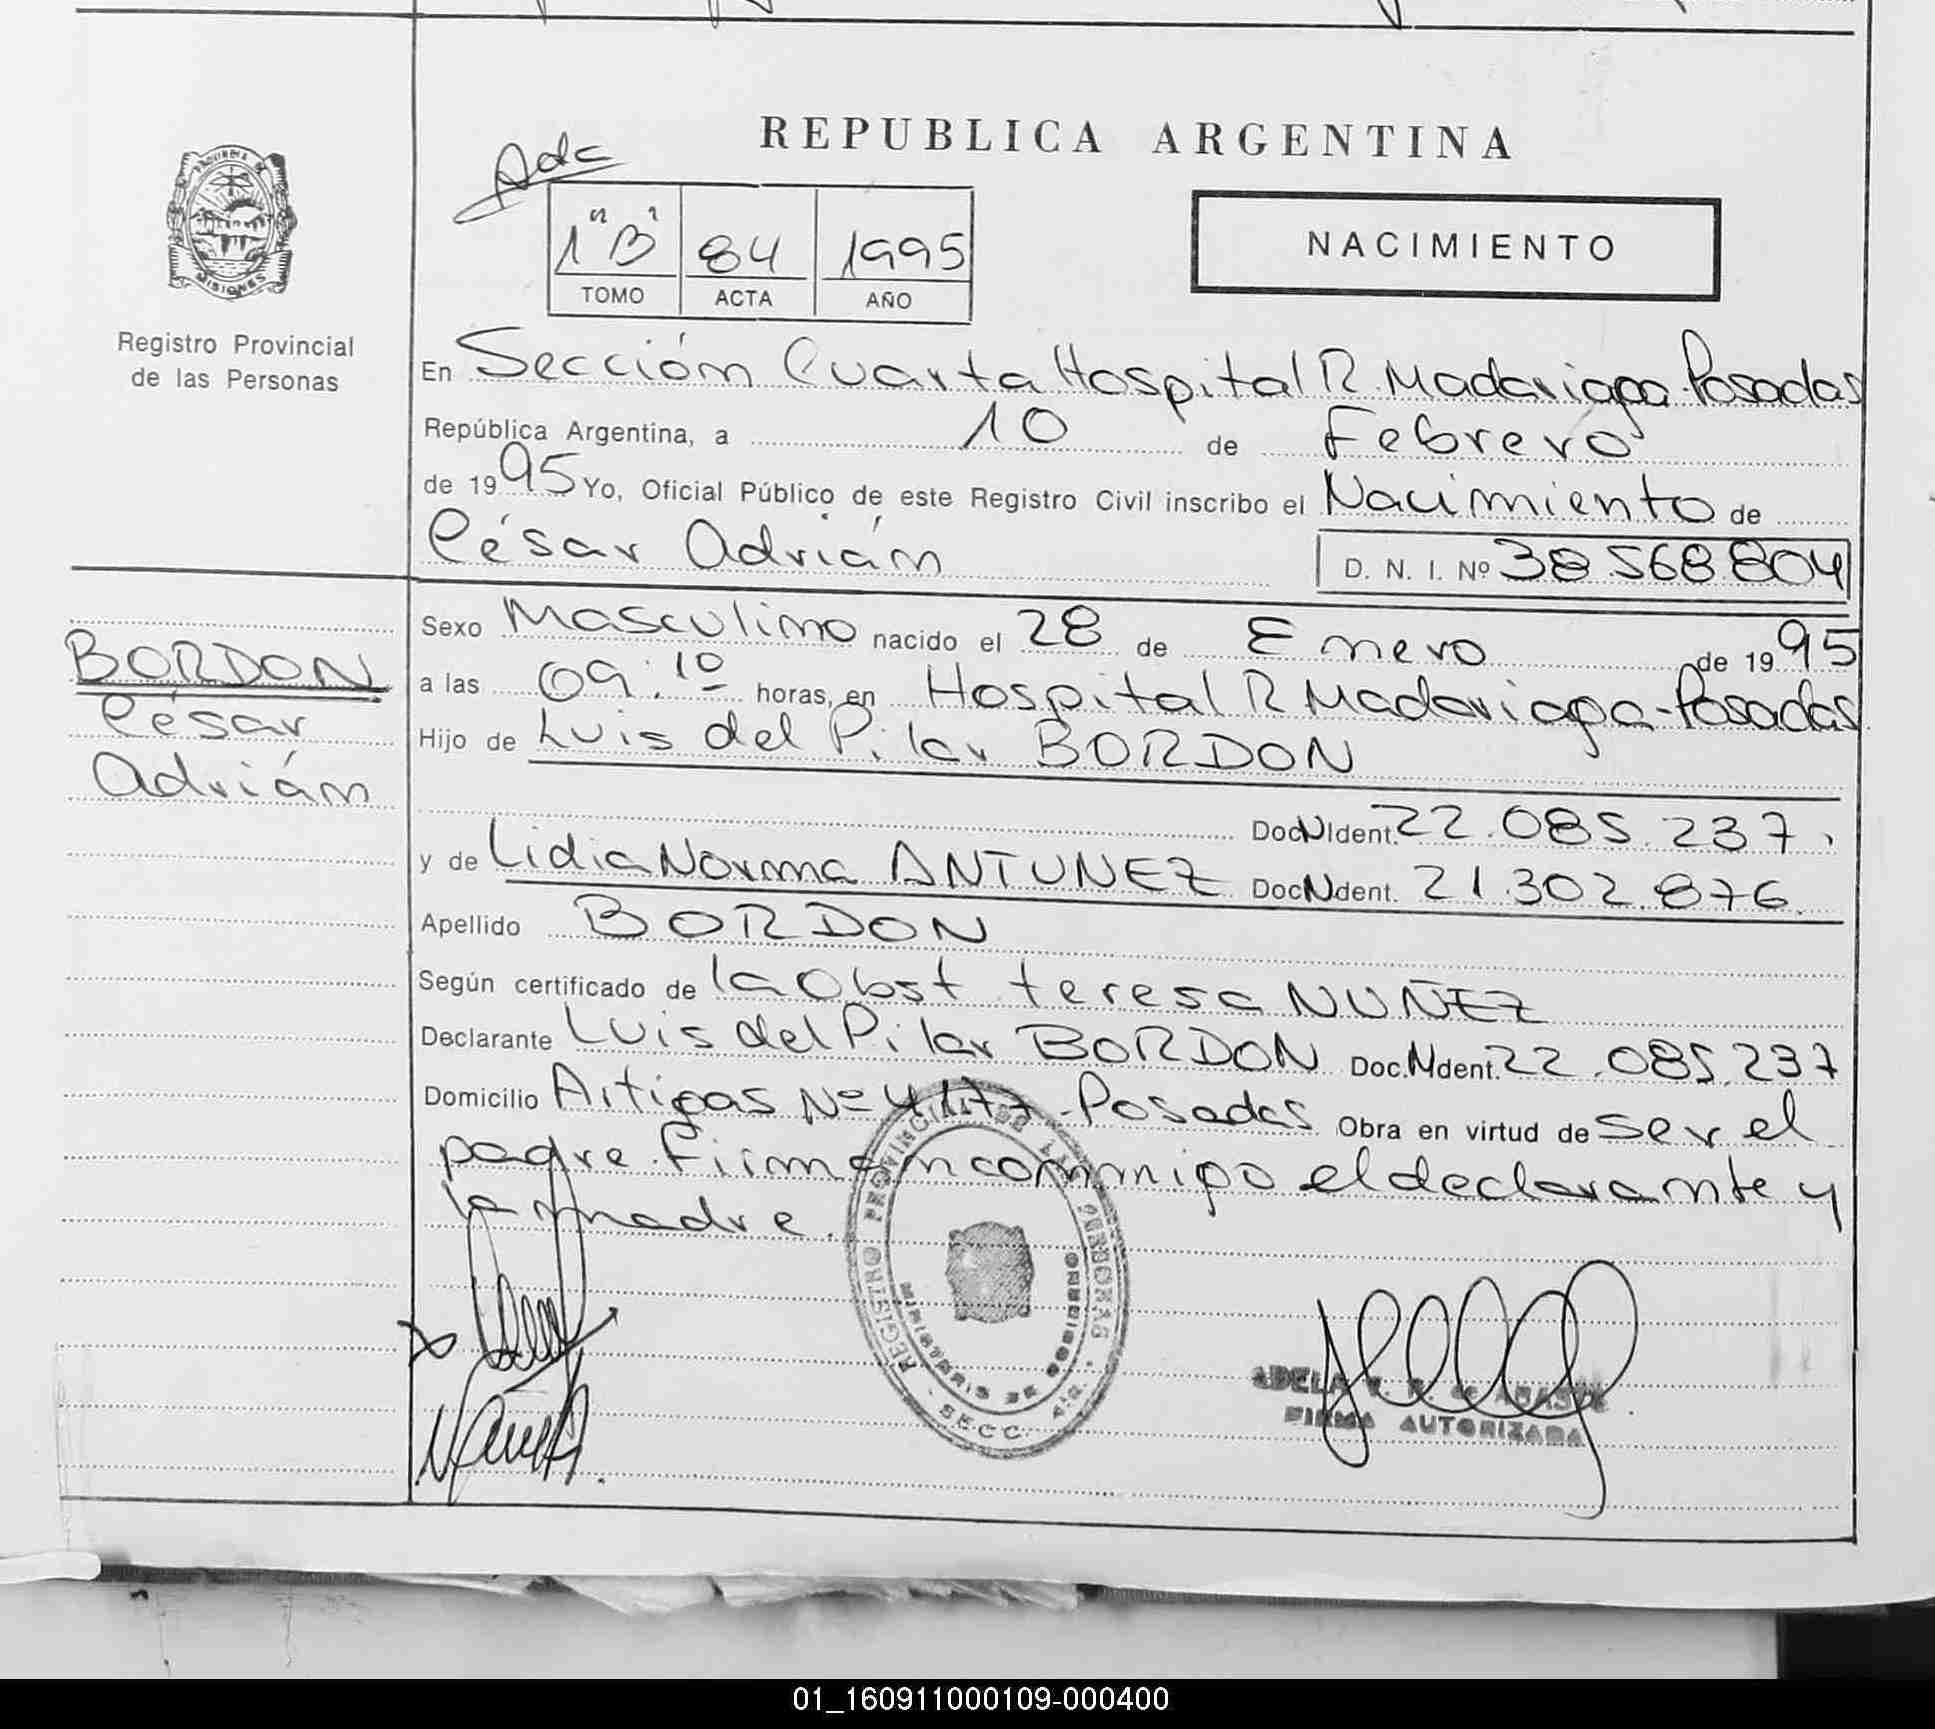 REPUBLICA ARGENTINA
Adc
1 "B" 84 1995
TOMO ACTA AÑO
NACIMIENTO
PROVINCIA DE
MISIONES
Registro Provincial
de las Personas
En Sección Cuarta Hospital R. Madariaga-Posadas
República Argentina, a 10 de Febrero
de 1995 Yo, Oficial Público de este Registro Civil inscribo el Nacimiento de
César Adrián D. N. I. Nº 38 568 804
BORDON
César
Adrián
Sexo Masculino nacido el 28 de Enero de 1995
a las 09:10 horas, en Hospital R Madariaga-Posadas
Hijo de Luis del Pilar BORDON
Doc N Ident. 22.085.237.
y de Lidia Norma ANTUNEZ Doc N dent. 21.302.876.
Apellido BORDON
Según certificado de la Obst teresa NUÑEZ
Declarante Luis del Pilar BORDON Doc. N dent. 22.085.237
Domicilio Artigas Nº 4177-Posadas Obra en virtud de ser el
padre. Firman conmigo el declarante y
la madre.
REGISTRO PROVINCIAL DE LAS PERSONAS
MINISTERIO DE GOBIERNO
SECC. 4ta.
ADELA de
FIRMA AUTORIZADA
01_160911000109-000400